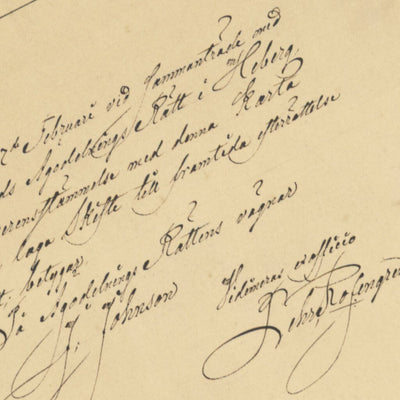 Februari vid Sammanträde med
Ägodelnings Rätt i Heberg
överensstämmelse med denna Karta
laga Skifte till framtida efterrättelse
betygar
På Ägodelnings Rättens vägnar
J. Johnson
Vidimeras ex officio
Fehr Rosengren